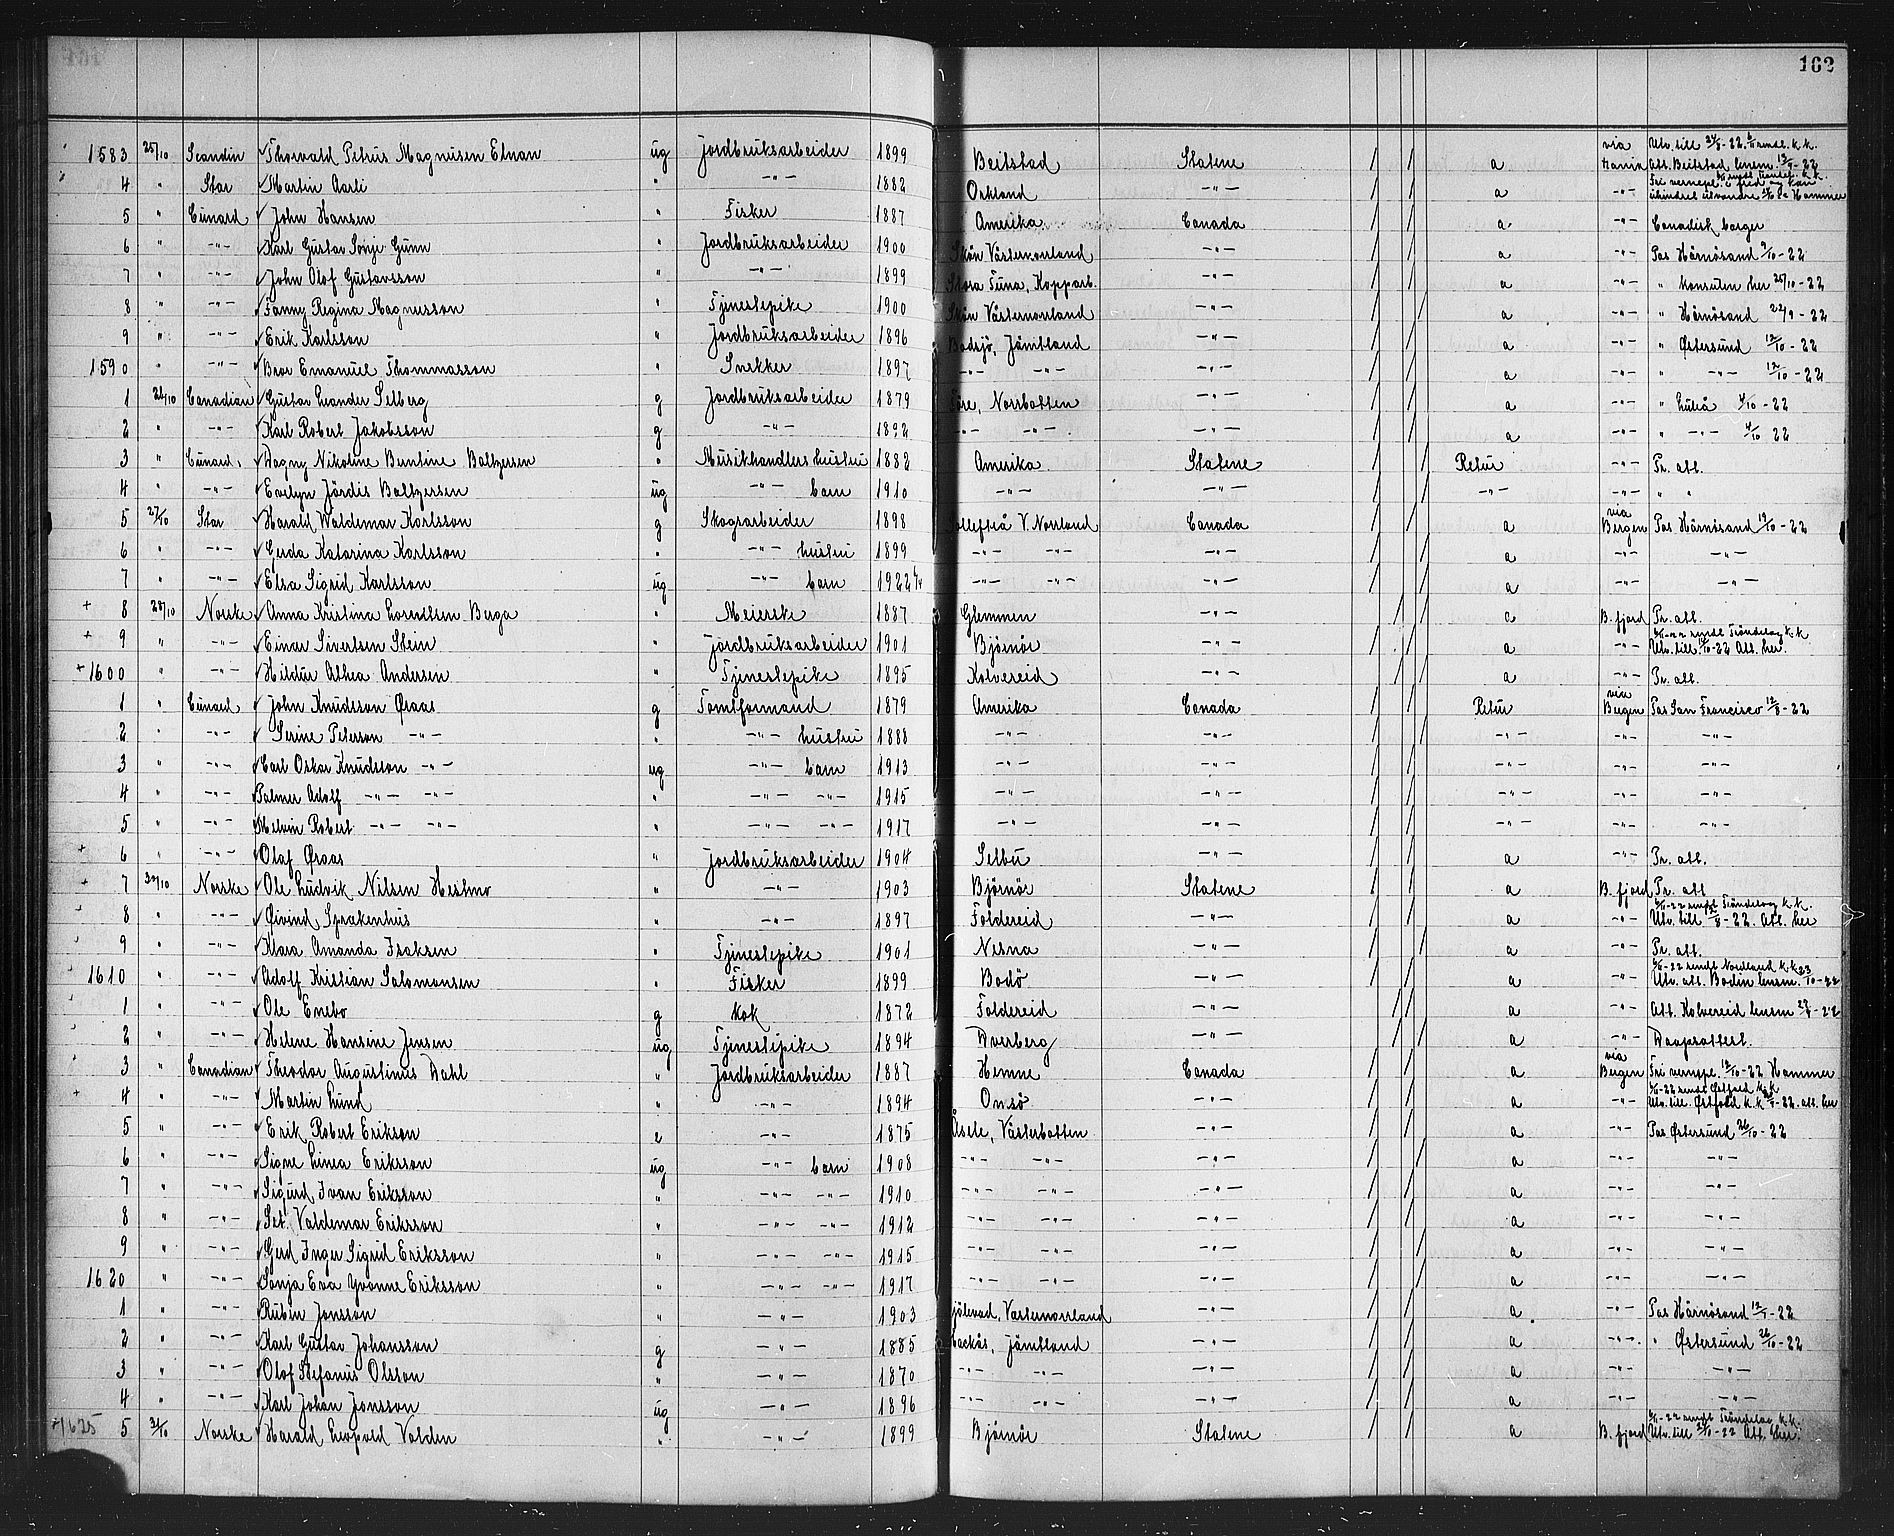 162
1583 25/10 Scandin Thorvald Petrus Magnusen Elnan ug Jordbruksarbeider 1899 Beitstad Statene / / a via Hania Utv. till 24/8-22. Att. Beitstad lensm. 12/9-22
4 " Star Martin Aarli " -"- 1882 Orkland -"- / / a -"-
5 " Cunard John Hansen " Fisker 1887 Amerika Canada / / a -"- Canadisk borger
6 " -"- Karl Gustav Sonje Gunn " Jordbruksarbeider 1900 Skön Västernorrland -"- / / a -"- Pas Härnösand 9/10-22
7 " -"- John Olof Gustavsson " -"- 1899 Stora Tuna, Kopparb. -"- / / a -"- " konsulen her 25/10-22
8 " -"- Fanny Regina Magnusson " Tjenestepike 1900 Skön Västernorrland -"- / / a -"- " Härnösand 22/9-22
9 " -"- Erik Karlsson " Jordbruksarbeider 1896 Bodsjö, Jämtland -"- / / a -"- " Østersund 12/10-22
1590 " -"- Bror Emanuel Thommasson " Snekker 1897 -"- -"- -"- / / a -"- " -"- 12/10-22
1 26/10 Canadian Gustav Leander Selberg g Jordbruksarbeider 1879 Töre, Norrbotten -"- / / a -"- " Luleå 4/10-22
2 " -"- Karl Robert Jakobsson g -"- 1892 -"- -"- -"- / / a -"- " -"- 4/10 22
3 " Cunard, Dagny Nikoline Buntine Baltzersen " Musikhandlers hustru 1882 Amerika Statene / / Retur -"- Pr. att.
4 " -"- Evelyn Jördis Baltzersen ug -"- barn 1910 -"- -"- / / -"- -"- " "
5 27/10 Star Harald Waldemar Karlsson g Skogsarbeider 1898 Sollefteå V. Norrland Canada / / a via Bergen Pas Härnösand 19/10-22
6 " -"- Gerda Katarina Karlsson " -"- hustru 1899 -"- -"- -"- / / a -"- -"-
7 " -"- Elsa Sigrid Karlsson ug -"- barn 1922 4/4 -"- -"- -"- / / a -"- -"-
+ 8 28/10 Norske Anna Kristina Lorentsen Berga " Meierske 1887 Glemmen -"- / / a B. fjord Pr. att.
+ 9 " -"- Einar Sivertsen Stein " jordbruksarbeider 1901 Bjørnør -"- / / a -"- Utv. till. Trøndelag k.k. Att. her.
+ 1600 " -"- Hildur Althea Andersen " Tjenestepike 1895 Kolvereid -"- / / a -"- Pr. att.
1 " Cunard John Knudsson Øraas g Tomtformand 1879 Amerika Canada / / Retur via Bergen Pas San Francisco 12/8-22
2 " -"- Serine Peterson -"- " -"- hustru 1888 -"- -"- / / -"- -"- -"-
3 " -"- Carl Oskar Knudsson -"- ug -"- barn 1913 -"- -"- / / -"- -"- -"-
4 " -"- Palmer Adolf -"- -"- " -"- -"- 1915 -"- -"- / / -"- -"- -"-
5 " -"- Melvin Robert -"- -"- " -"- -"- 1917 -"- -"- / / -"- -"- -"-
+ 6 " -"- Olaf Øraas " jordbruksarbeider 1904 Selbu -"- / / a -"- Pr. att.
+ 7 30/10 Norske Ole Ludvik Nilsen Hestmo " -"- 1903 Bjørnør Statene / / a B. fjord Pr. att
8 " -"- Øivind Sprakenhus " -"- 1897 Foldereid -"- / / a -"- Trøndelag k.k. Utv. till 12/8-22. Att. her
9 " -"- Klara Amanda Isaksen " Tjenestepike 1901 Nesna -"- / / a -"- Pr. att.
1610 " -"- Adolf Kristian Salomonsen " Fisker 1899 Bodö -"- / / a -"- Nordland k.k. Utv. att. Bodin lensm. 23/10-22
1 " -"- Ole Enebo g kok 1872 Foldereid -"- / / a -"- Att. Kolvereid lensm 27/4-22
2 " -"- Helene Hansine Jensen ug Tjenestepike 1894 Dverberg -"- / / a -"- Daapsattest.
3 " Canadian Theodor Augustinus Dahl " Jordbruksarbeider 1887 Hemne Canada / / a via Bergen Fri vernepl. 12/10-22 Hammer
+ 4 " -"- Martin Lund " -"- 1894 Onsö -"- / / a -"- Utv. till. Østfold k.k. att. her
5 " -"- Erik Robert Erikson e -"- 1875 Åsele, Västerbotten -"- / / a -"- Pas Østersund 26/10-22
6 " -"- Signe Linea Eriksson ug -"- barn 1908 -"- -"- -"- / / a -"- -"-
7 " -"- Sigurd Ivan Eriksson " -"- -"- 1910 -"- -"- -"- / / a -"- -"-
8 " -"- Set Valdemar Eriksson " -"- -"- 1912 -"- -"- -"- / / a -"- -"-
9 " -"- Gerd Inger Sigrid Eriksson " -"- -"- 1915 -"- -"- -"- / / a -"- -"-
1620 " -"- Sonja Eva Yvonne Eriksson " -"- -"- 1917 -"- -"- -"- / / a -"- -"-
1 " -"- Ruben Jonsson " -"- 1903 Själevad, Västernorrland -"- / / a -"- Pas Härnösand 12/9-22
2 " -"- Karl Gustav Johansson g -"- 1885 Backås, Jämtland -"- / / a -"- " Østersund 26/10-22
3 " -"- Olof Stefanus Olsson " -"- 1870 -"- -"- -"- / / a -"- -"-
4 " -"- Karl Johan Jonsson ug -"- 1896 -"- -"- -"- / / a -"- -"-
+1625 5 31/10 Norske Harald Leopold Volden " -"- 1899 Bjørnör Statene / / a B. fjord Trøndelag k.k. Utv. till 31/10-22 Att. her.